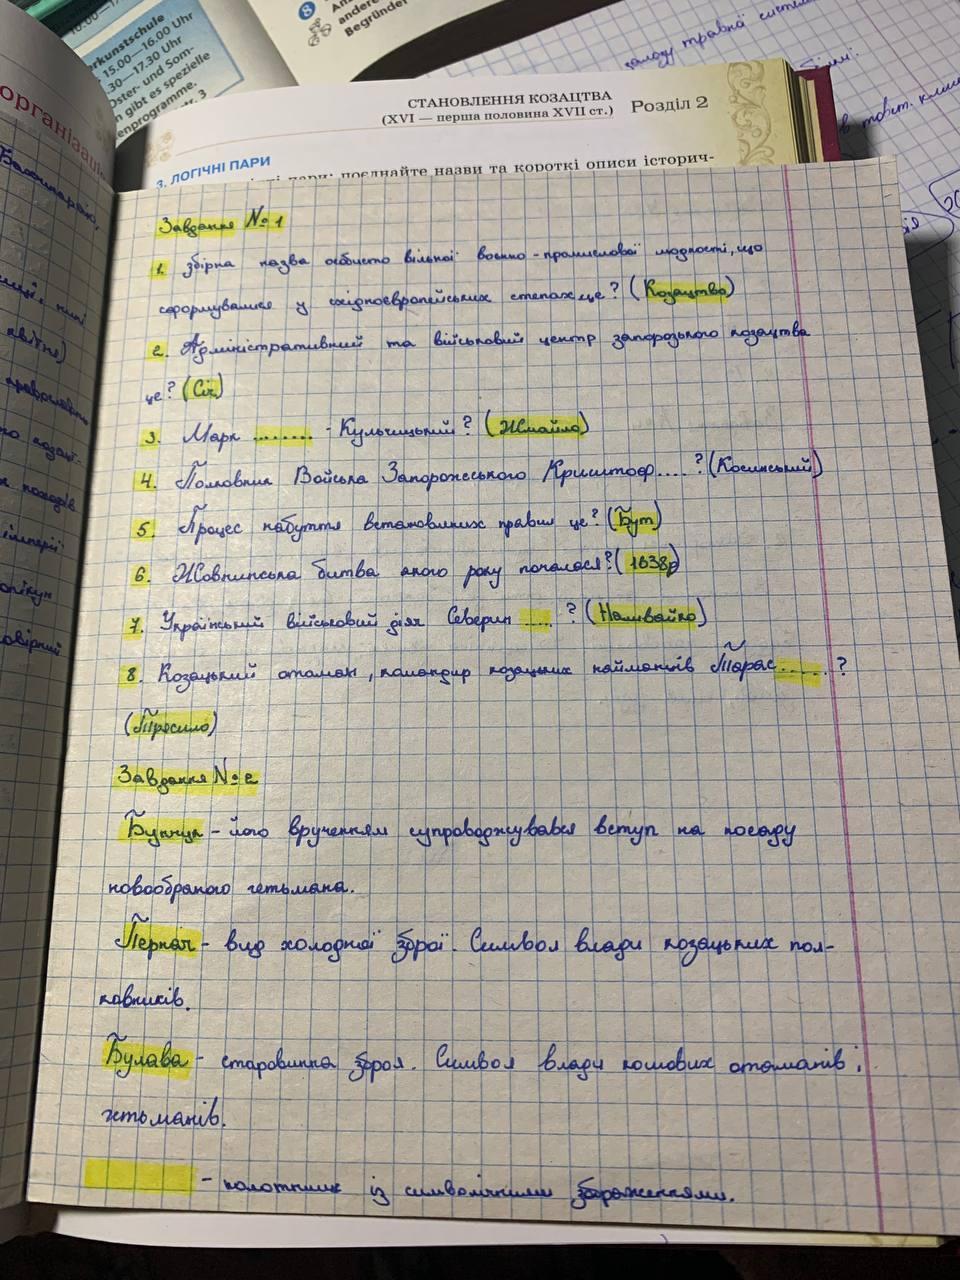 rkunstschule
15.00—16.00 Uhr
.30—17.30 Uhr
Oster- und Som-
n gibt es spezielle
enprogramme.
8
andere
Begründe
організаці
СТАНОВЛЕННЯ КОЗАЦТВА
(XVI — перша половина XVII ст.)
Розділ 2
3. ЛОГІЧНІ ПАРИ
пари: поєднайте назви та короткі описи історич-
Завдання №1
1. збірна назва особисто вільної воєнно-промислової людності, що
сформувалися у східноєвропейських степах це? (Козацтво)
2. Адміністративний та військовий центр запорозького козацтва
це? (Січ)
3. Марк ........ - Кульчицький? (Жмайло)
4. Полковник Війська Запорожського Криштоф....? (Косинський)
5. Процес набуття встановлених правил це? (Бут)
6. Жовнинська битва якого року почалася? (1638р)
7. Український військовий діяч Северин ....? (Наливайко)
8. Козацький отаман, командир козацьких найманців Тарас.....?
(Трясило)
Завдання №2
Бунчук - його врученням супроводжувався вступ на посаду
новообраного гетьмана.
Пернач - вид холодної зброї. Символ влади козацьких пол-
ковників.
Булава - старовинна зброя. Символ влади кошових отаманів і
гетьманів.
- полотнище із символічними зображеннями.